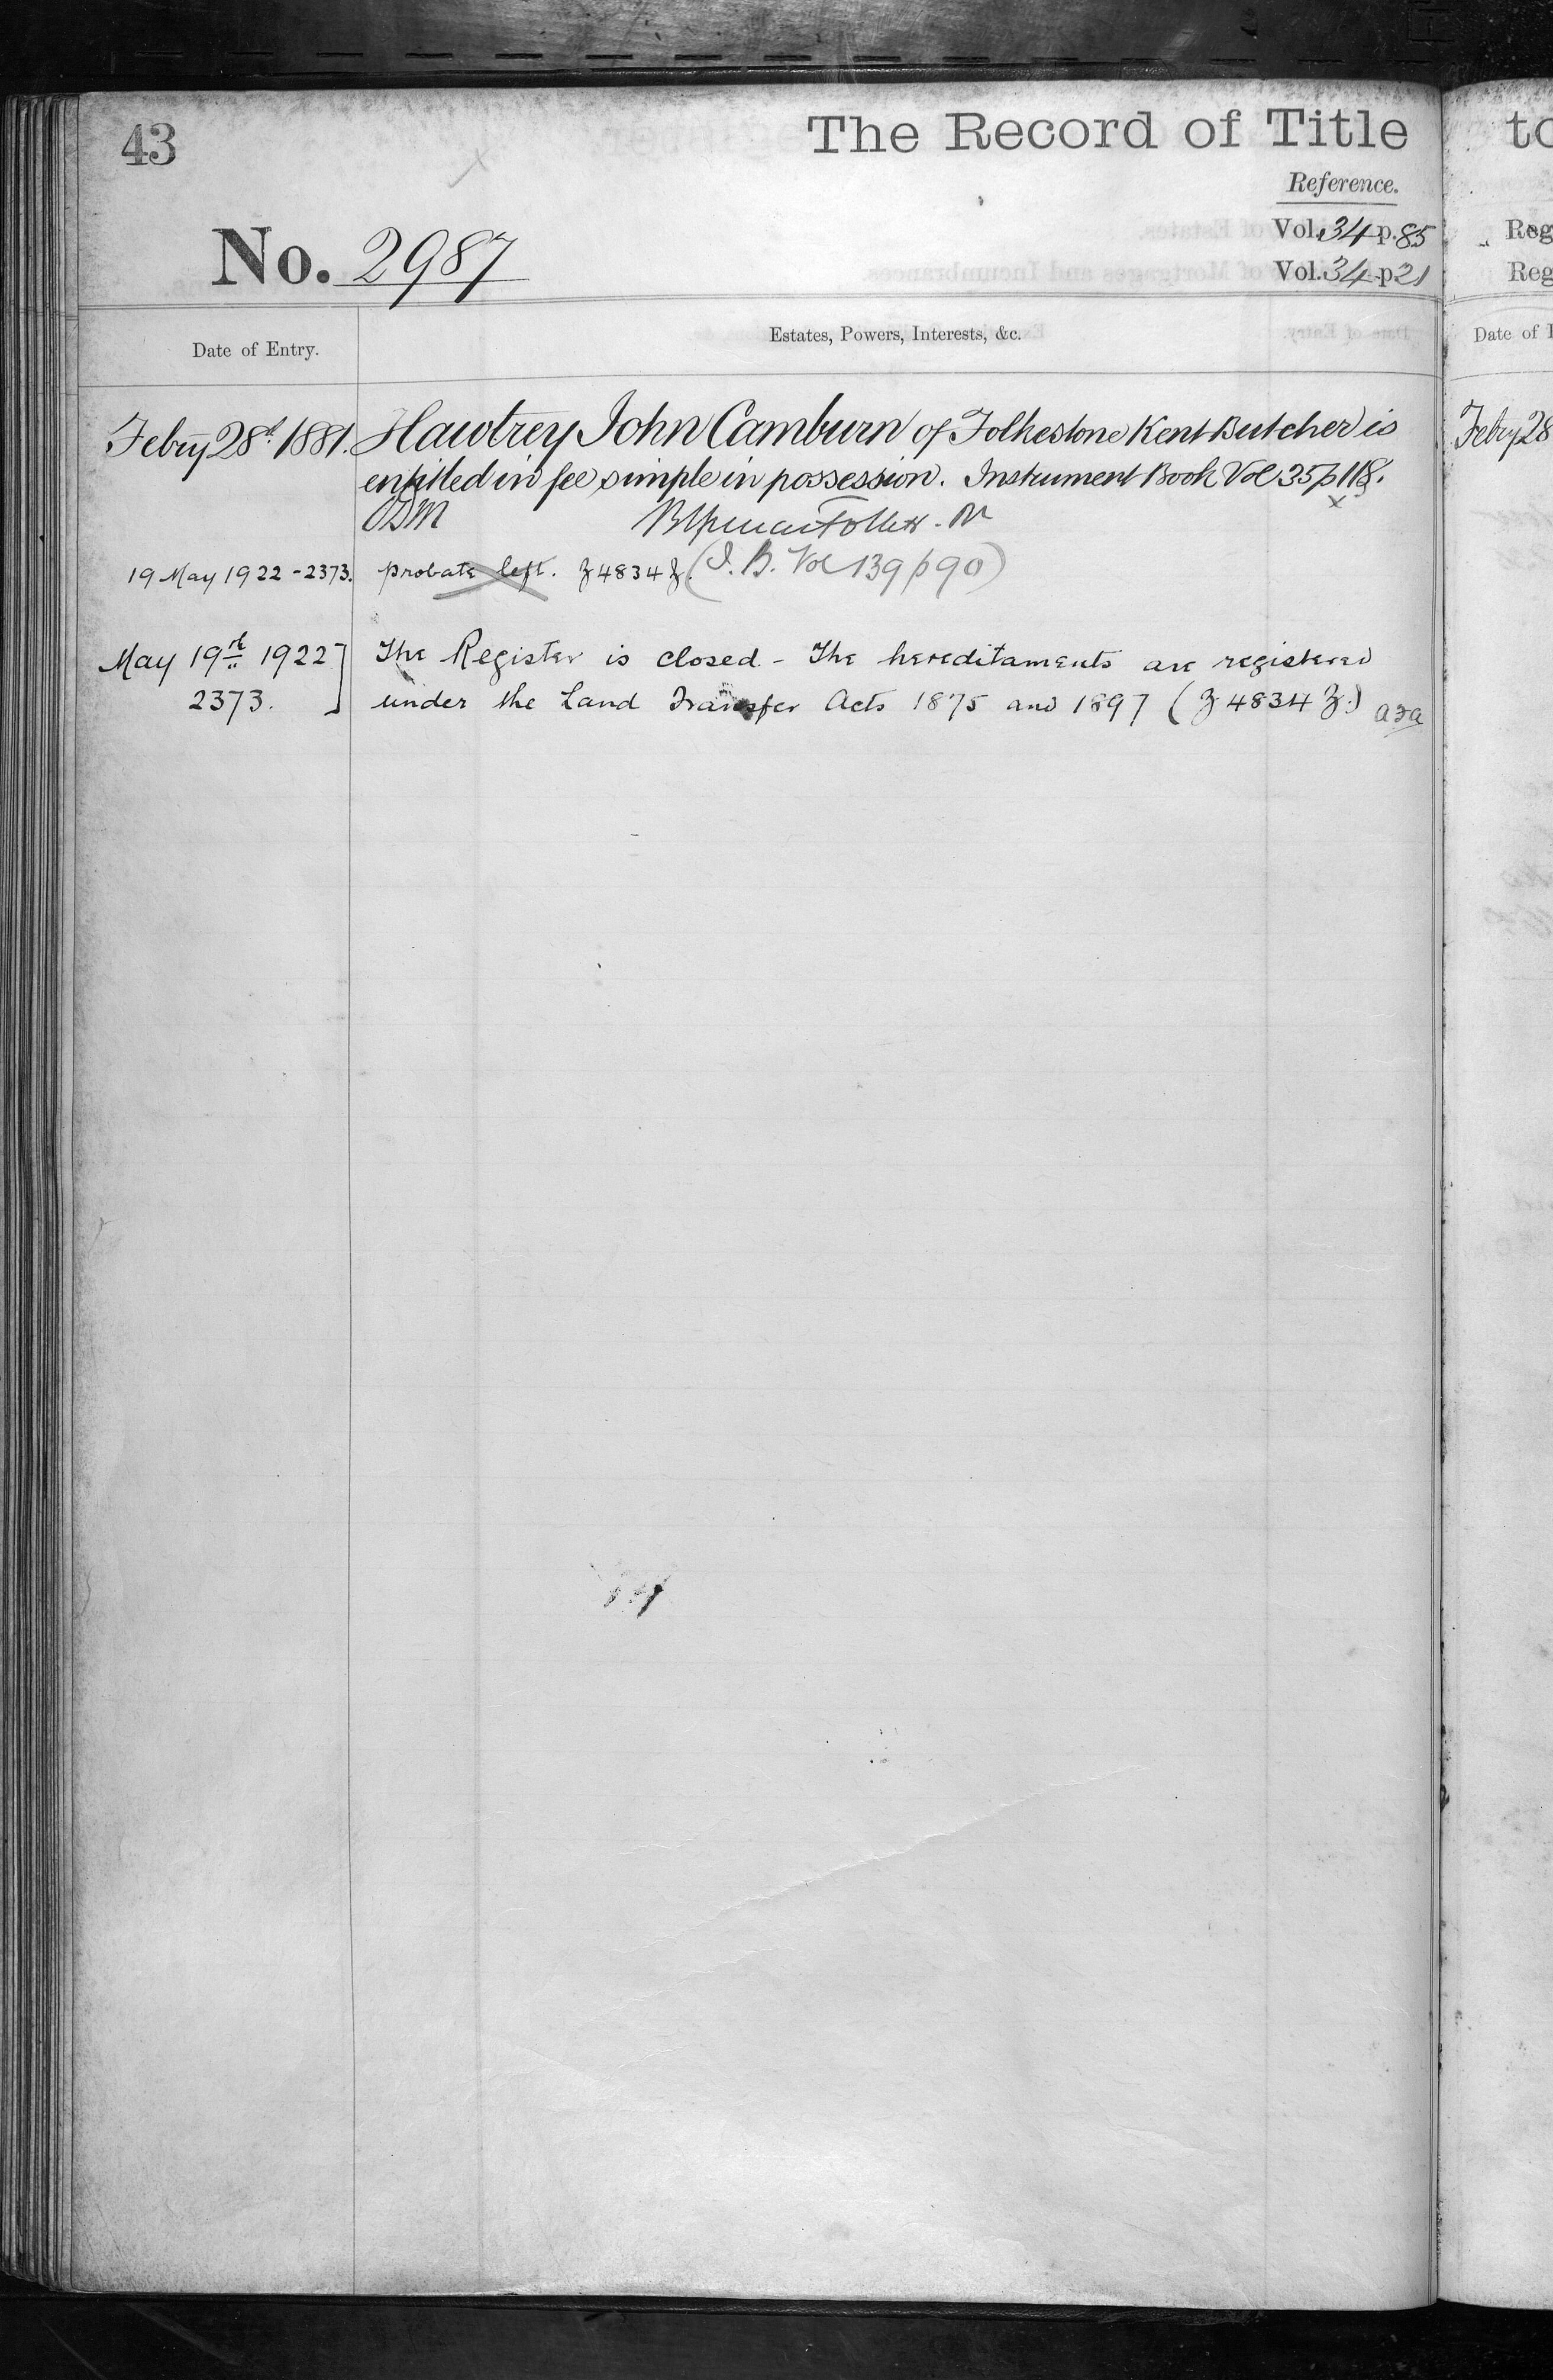 43
The Record of Title
Reference.
No. 2987
Vol. 34 p. 85
Vol. 34 p 21
Date of Entry.
Estates, Powers, Interests, &c.
Febry 28th 1881. Hawtrey John Camburn of Folkestone Kent Butcher is
entitled in fee simple in possession. Instrument Book Vol 35 p 118.
ODM
19 May 1922 - 2373. probate left. Z 4834 Z. (I. B. Vol 139 p 90)
May 19th 1922 The Register is closed - The hereditaments are registered
2373. under the Land Transfer Acts 1875 and 1897 (Z 4834 Z.)
to
Reg
Reg
Date of
Febry 28